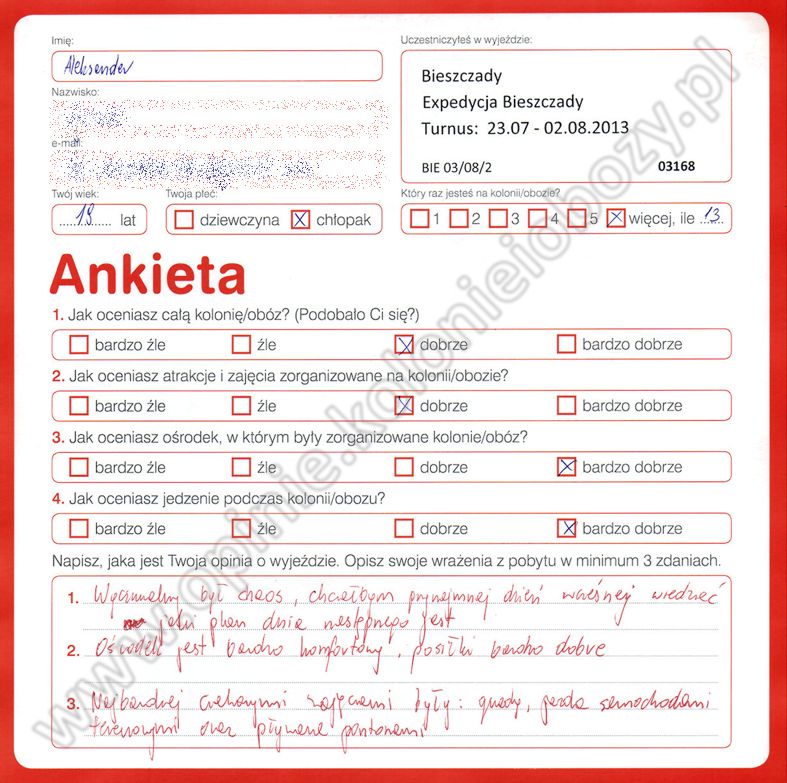 Imię:
Aleksander
Uczestniczyłeś w wyjeździe:
Bieszczady
Expedycja Bieszczady
Turnus: 23.07 - 02.08.2013
BIE 03/08/2 03168
Nazwisko:
e-mail:
Twój wiek:
Twoja płeć:
Który raz jesteś na kolonii/obozie?
.....19...... lat
dziewczyna chłopak
1 2 3 4 5 więcej, ile 13
Ankieta
1. Jak oceniasz całą kolonię/obóz? (Podobało Ci się?)
bardzo źle źle dobrze bardzo dobrze
2. Jak oceniasz atrakcje i zajęcia zorganizowane na kolonii/obozie?
bardzo źle źle dobrze bardzo dobrze
3. Jak oceniasz ośrodek, w którym były zorganizowane kolonie/obóz?
bardzo źle źle dobrze bardzo dobrze
4. Jak oceniasz jedzenie podczas kolonii/obozu?
bardzo źle źle dobrze bardzo dobrze
Napisz, jaka jest Twoja opinia o wyjeździe. Opisz swoje wrażenia z pobytu w minimum 3 zdaniach.
1. był chaos, chciałbym przynajmniej dzień wcześniej wiedzieć
jaki plan dnia następnego jest
2. Ośrodek jest bardzo komfortowy, posiłki bardzo dobre
3. Najbardziej ciekawymi zajęciami były: quady, jazda samochodami
terenowymi oraz pływanie pontonami
www.opinie.kolonieiobozy.pl